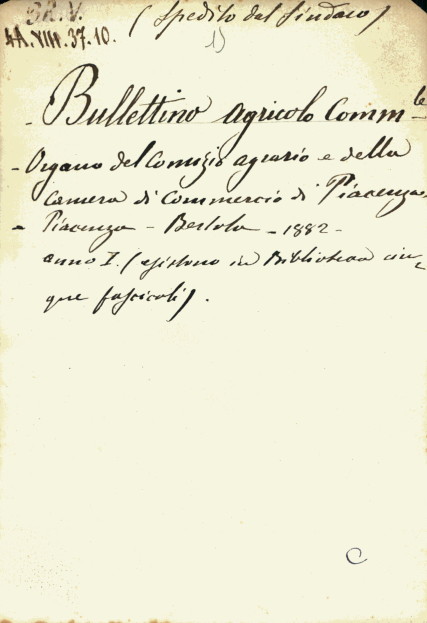 BR.V. (Spedito dal Sindaco)
4A.VIII.37.10. 1)
- Bullettino agricolo Comm.le
- Organo del Comizio agrario e della
Camera di Commercio di Piacenza
- Piacenza - Bertola - 1882 -
anno I. (esistono in Biblioteca cin-
que fascicoli).
C